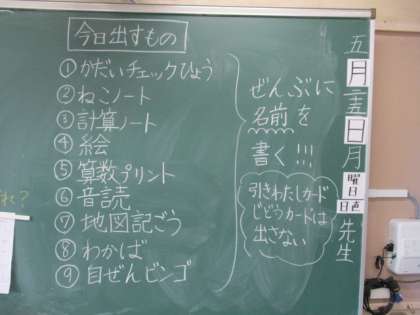 今日出すもの
①かだいチェックひょう
②ねこノート
③計算ノート
④絵
⑤算数プリント
⑥音読
⑦地図記ごう
⑧わかば
⑨自ぜんビンゴ
ぜんぶに
名前を
書く!!!
引きわたしカード
じどうカードは
出さない
五月二五日月曜日
日直 先生
れ?